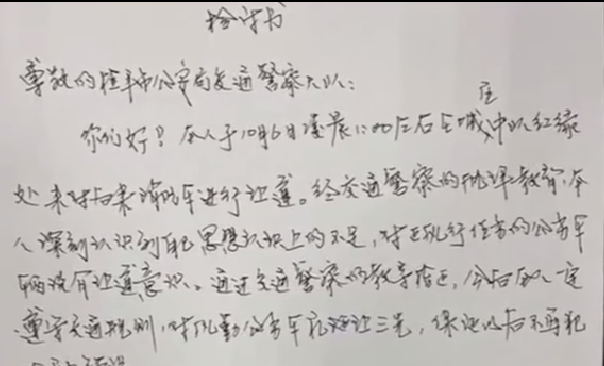 检讨书
尊敬的桂平市公安局交通警察大队:
你们好?本人于10月6日凌晨1:00左右在城中区红绿
处未对后来消防车进行让道。经交通警察的批评教育,本
人深刻认识到自己思想认识上的不足,对正执行任务的公务车
辆没有让道意识。通过交通警察的教育指正,今后本人一定
遵守交通规则,对执勤公务车礼让三先,保证以后不再犯